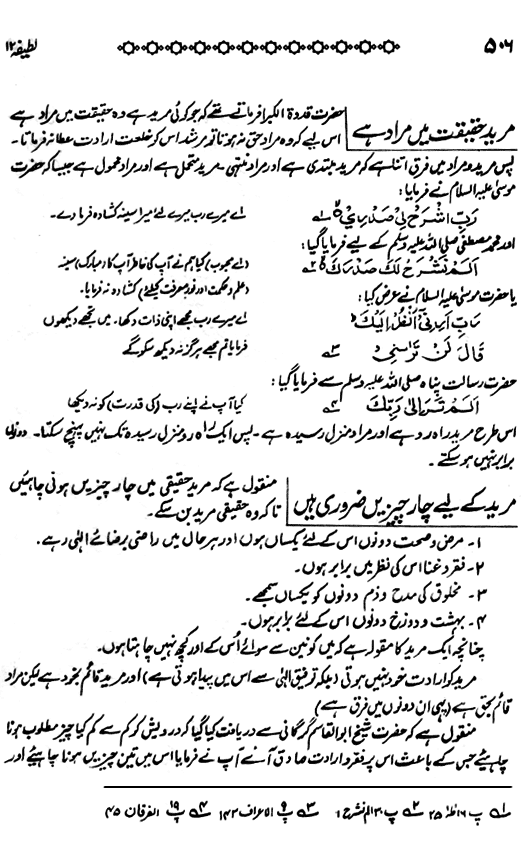 ۵۰۶
لطیفہ ۱۲
مرید حقیقت میں مراد ہے
حضرت قدوۃ الکبرا فرماتے تھے کہ جو کوئی مرید ہے وہ حقیقت میں مراد ہے
اس لیے کہ وہ مراد حق نہ ہوتا تو مرشد اس کو خلعت ارادت عطا نہ فرماتا۔
پس مرید و مراد میں فرق اتنا ہے کہ مرید مبتدی ہے اور مراد منتہی۔ مرید متحمل ہے اور مراد محمول ہے جیسا کہ حضرت
موسیٰ علیہ السلام نے فرمایا:
رَبِّ اشْرَحْ لِیْ صَدْرِیْ ۱ اے میرے رب میرے لیے میرا سینہ کشادہ فرما دے۔
اور محمد مصطفیٰ صلی اللہ علیہ وسلم کے لیے فرمایا گیا:
اَلَمْ نَشْرَحْ لَكَ صَدْرَكَ ۲ (اے محبوب) کیا ہم نے آپ کی خاطر آپ کا (مبارک) سینہ
(علم و حکمت اور نور معرفت کیلئے) کشادہ نہ فرمایا۔
یا حضرت موسیٰ علیہ السلام نے عرض کیا:
رَبِّ اَرِنِیْ اَنْظُرْ اِلَیْكَ اے میرے رب مجھے اپنی ذات دکھا۔ میں تجھے دیکھوں
قَالَ لَنْ تَرٰىنِیْ ۳ فرمایا تم مجھے ہرگز نہ دیکھ سکو گے
حضرت رسالت پناہ صلی اللہ علیہ وسلم سے فرمایا گیا:
اَلَمْ تَرَ اِلٰی رَبِّكَ ۴ کیا آپ نے اپنے رب (کی قدرت) کو نہ دیکھا
اس طرح مرید راہ رو ہے اور مراد منزل رسیدہ ہے۔ پس ایک راہ رو منزل رسیدہ تک نہیں پہنچ سکتا۔ دونوں
برابر نہیں ہو سکتے۔
مرید کے لیے چار چیزیں ضروری ہیں
منقول ہے کہ مرید حقیقی میں چار چیزیں ہونی چاہئیں
تا کہ وہ حقیقی مرید بن سکے۔
۱- مرض و صحت دونوں اس کے لئے یکساں ہوں اور ہر حال میں راضی برضائے الٰہی رہے۔
۲- فقر و غنا اس کی نظر میں برابر ہوں۔
۳- مخلوق کی مدح و ذم دونوں کو یکساں سمجھے۔
۴- بہشت و دوزخ دونوں اس کے لئے برابر ہوں۔
چنانچہ ایک مرید کا مقولہ ہے کہ میں کونین سے سوائے اُس کے اور کچھ نہیں چاہتا ہوں۔
مرید کو ارادت خود نہیں ہوتی (بلکہ توفیق الٰہی سے اس میں پیدا ہوتی ہے) اور مرید قائم بخود ہے لیکن مراد
قائم بحق ہے (یہی ان دونوں میں فرق ہے)
منقول ہے کہ حضرت شیخ ابوالقاسم گرگانی سے دریافت کیا گیا کہ درویش کو کم سے کم کیا چیز مطلوب ہونا
چاہیئے جس کے باعث اس پر فقر و ارادت صادق آئے آپ نے فرمایا اس میں تین چیزیں ہونا چاہیئے اور
۱ پ ۱۶ طٰہٰ ۲۵ ۲ پ ۳۰ الم نشرح ۱ ۳ پ ۹ الاعراف ۱۴۳ ۴ پ ۱۹ الفرقان ۴۵